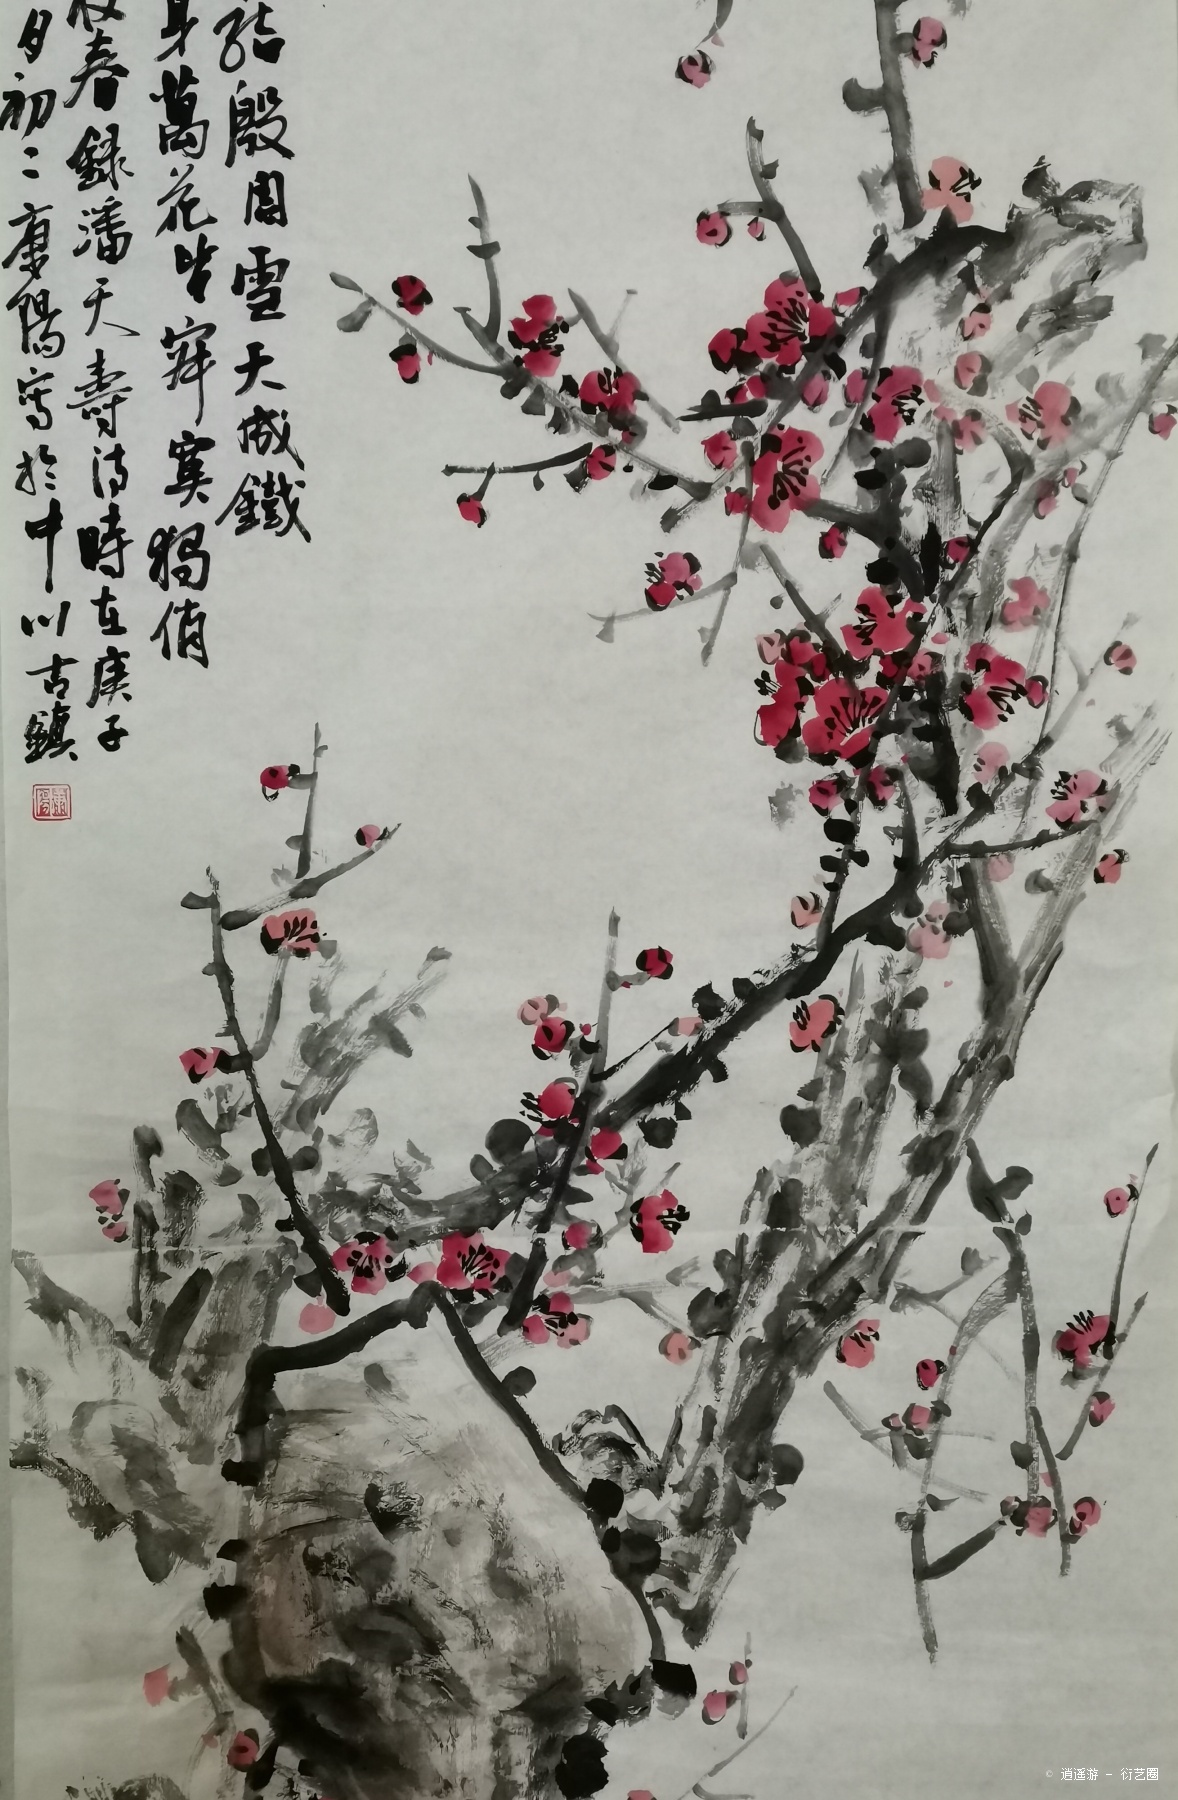 殷周雪天成鐵
身萬花皆寂寞獨俏
春錄潘天壽詩時在庚子
月初二康陽寫於中川古鎮
© 逍遥游 - 衍艺圈